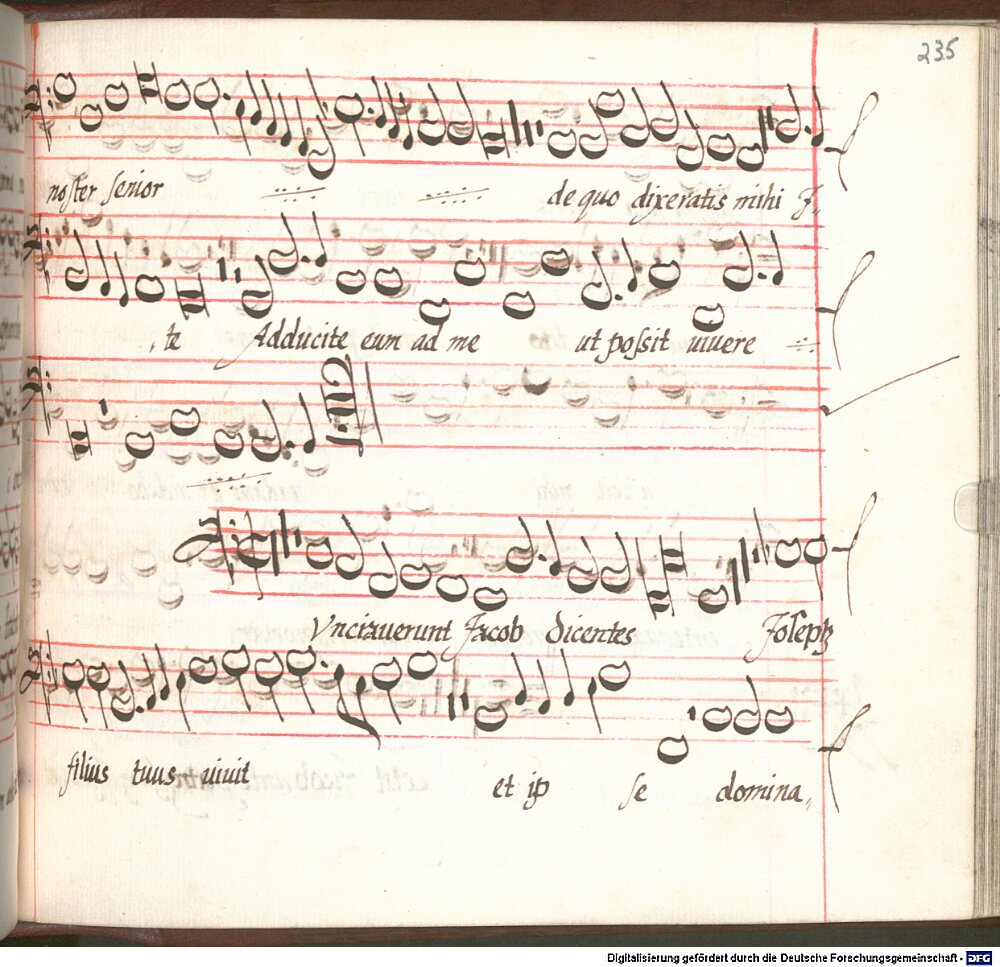 235
noster senior de quo dixeratis mihi J„
te Adducite eum ad me ut possit uiuere
Vnciauerunt Jacob dicentes Joseph
filius tuus uiuit et ip se domina„
Digitalisierung gefördert durch die Deutsche Forschungsgemeinschaft - DFG